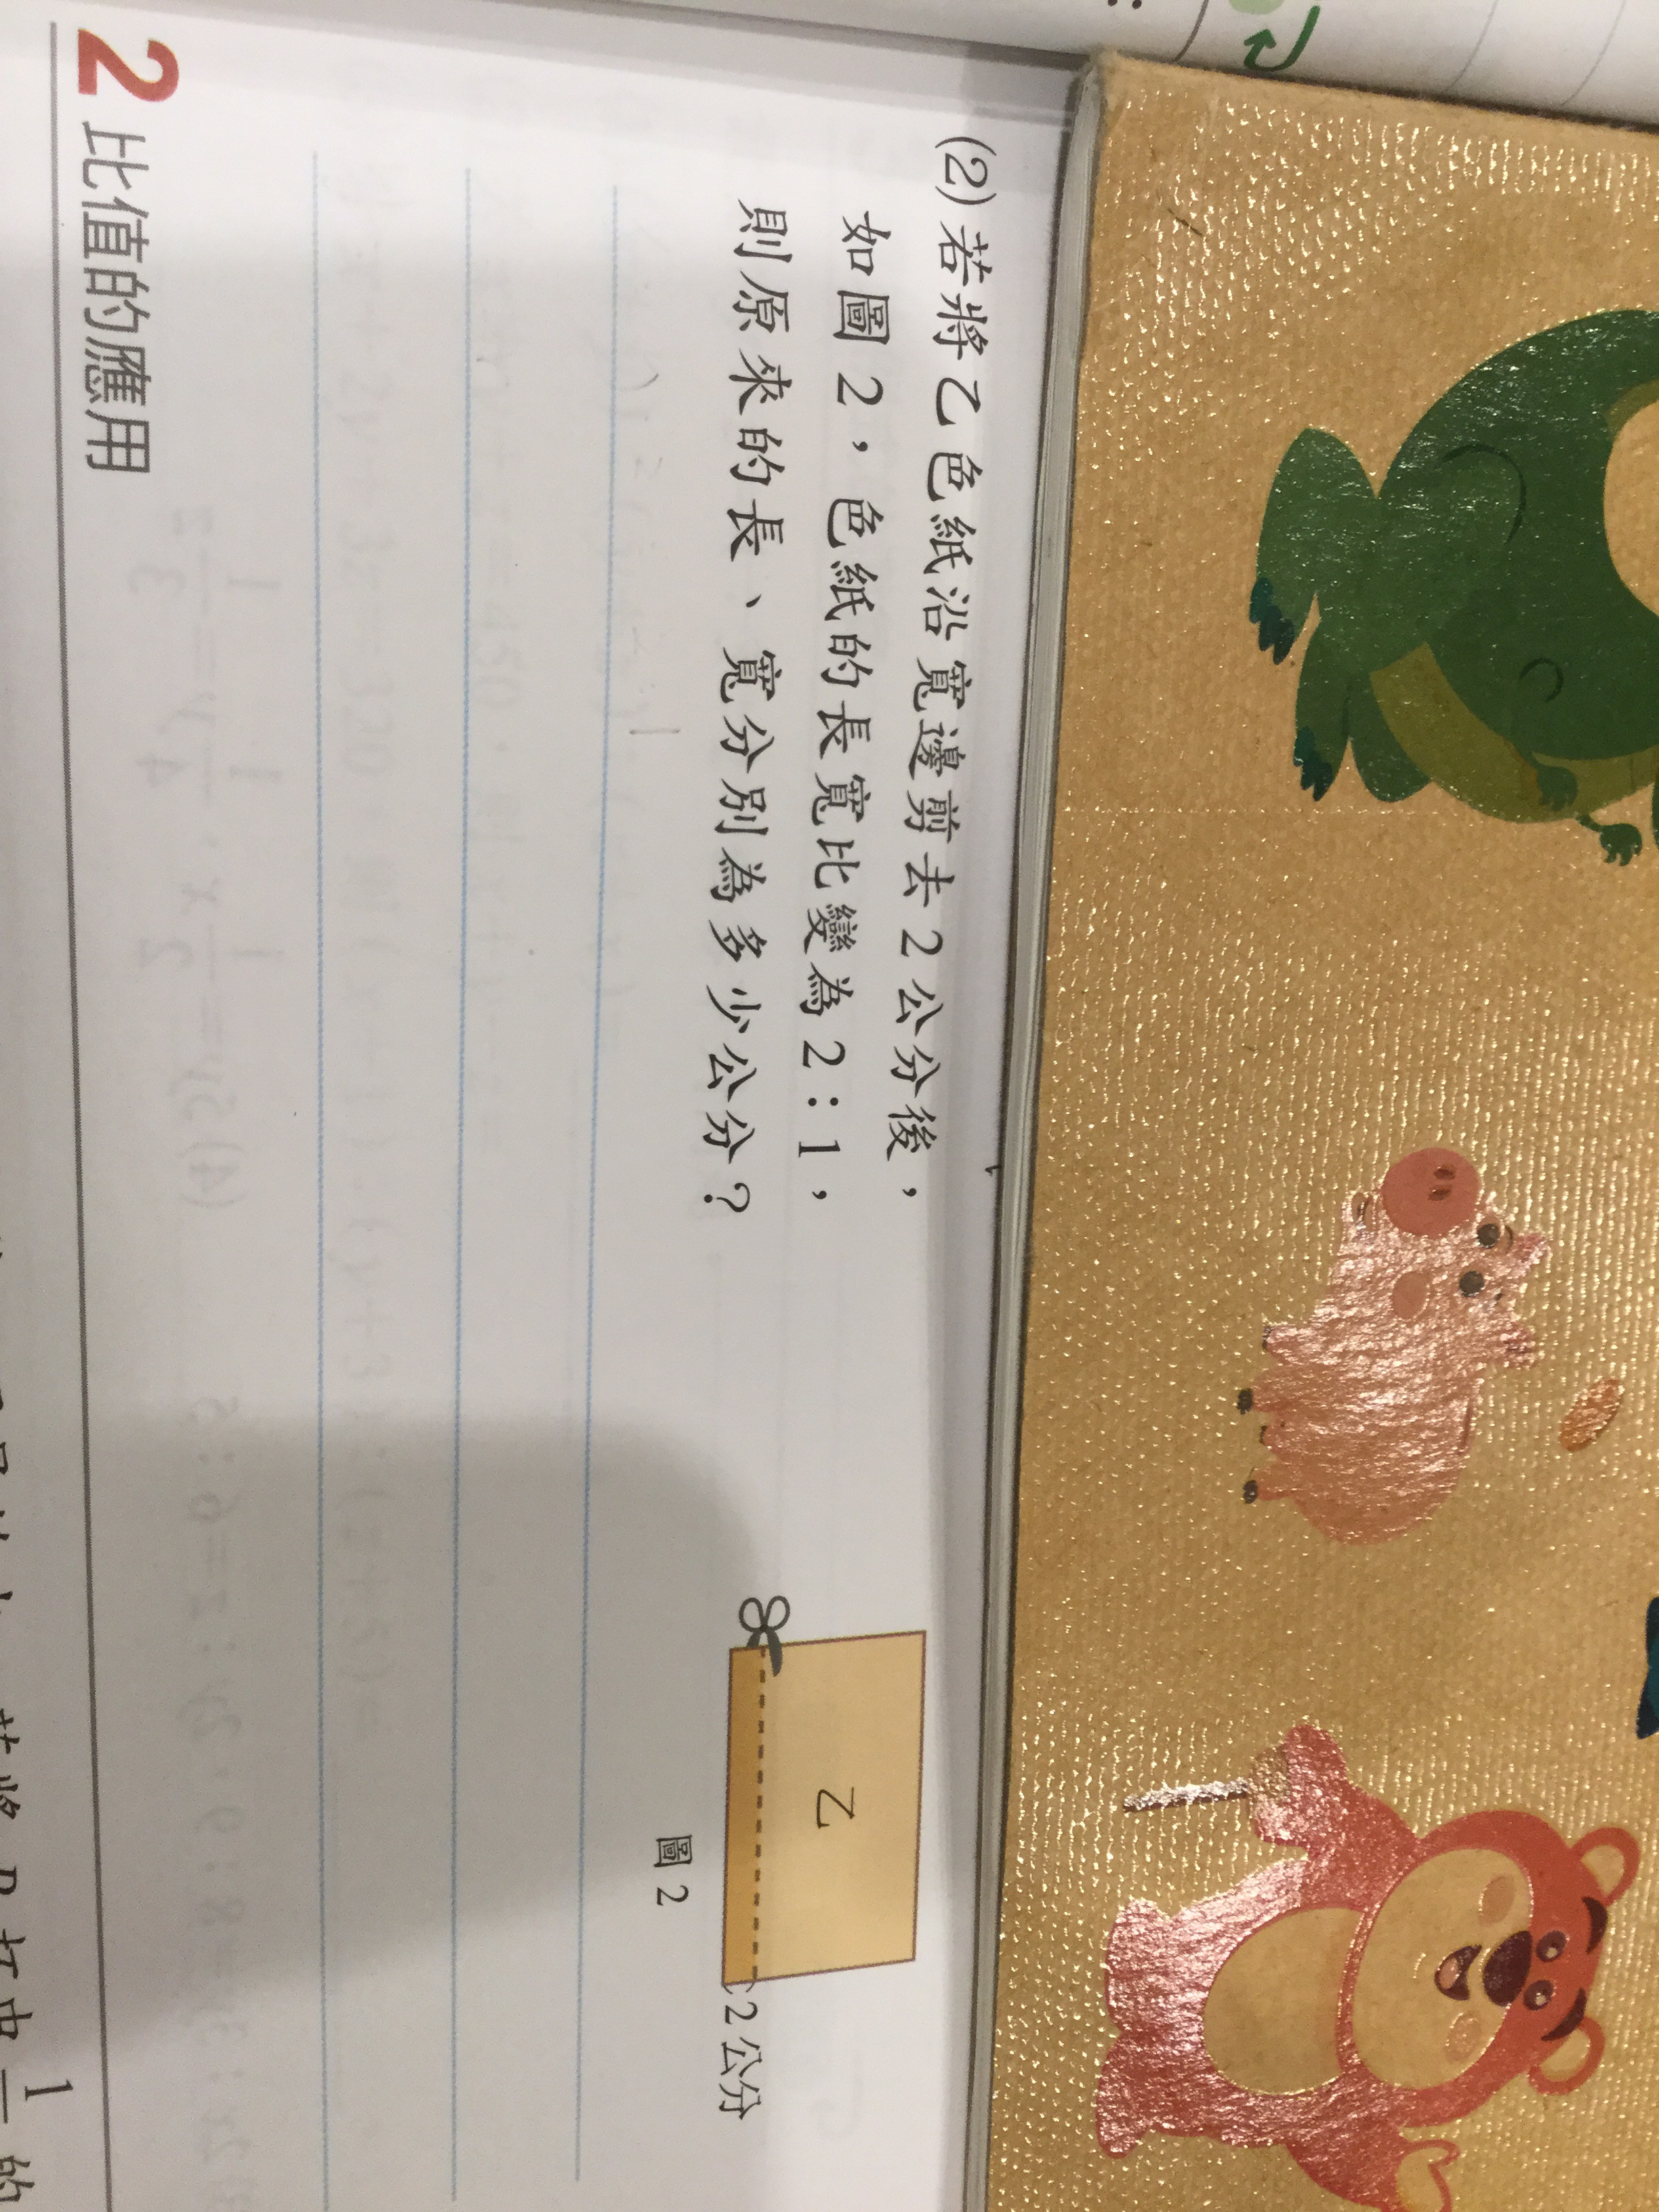 (2) 若將乙色紙沿寬邊剪去2公分後，
如圖2，色紙的長寬比變為2：1，
則原來的長、寬分別為多少公分？
乙
2公分
圖2
2 比值的應用